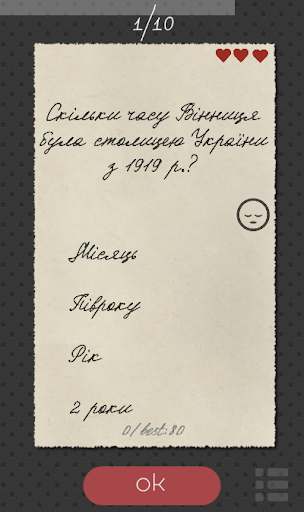 1/10
Скільки часу Вінниця
була столицею України
з 1919 р.?
Місяць
Півроку
Рік
2 роки
0/best:80
ok